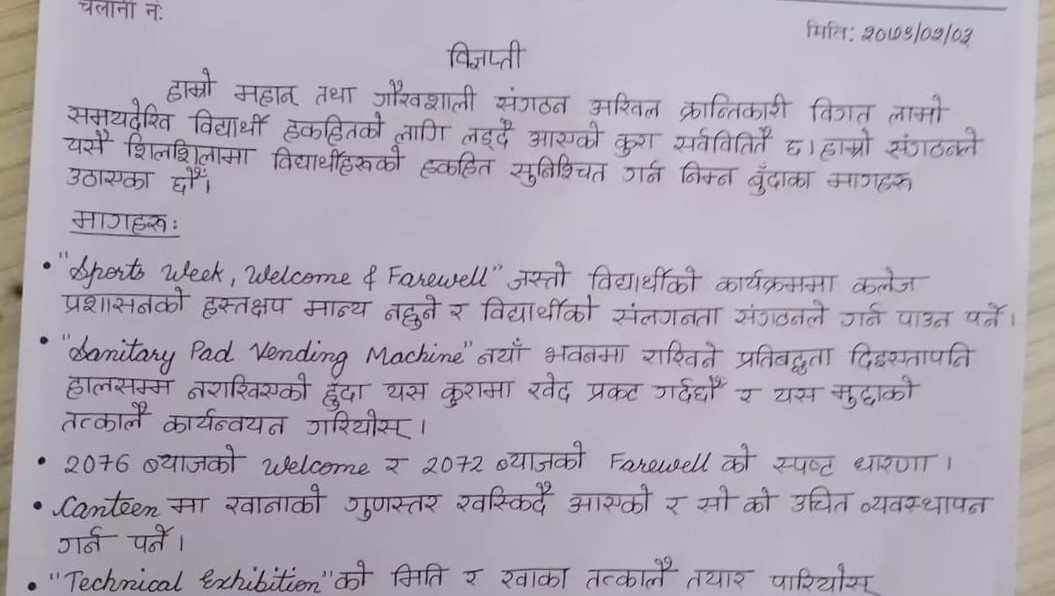 चलानी नं:
मिति: २०७९/०२/०३
विज्ञप्ती
हाम्रो महान् तथा गौरवशाली संगठन अखिल क्रान्तिकारी विगत लामो
समयदेखि विद्यार्थी हकहितको लागि लड्दै आएको कुरा सर्वविवितै छ। हाम्रो संगठनले
यसै शिलशिलामा विद्यार्थीहरूको हकहित सुनिश्चित गर्न निम्न बुँदाका मागहरू
उठाएका छौँ।
मागहरू:
• "Sports Week, Welcome & Farewell" जस्तो विद्यार्थीको कार्यक्रममा कलेज
प्रशासनको हस्तक्षप मान्य नहुने र विद्यार्थीको संलगनता संगठनले गर्न पाउन पर्ने।
• "Sanitary Pad Vending Machine" नयाँ भवनमा राखिने प्रतिबद्धता दिइएतापनि
हालसम्म नराखिएको हुँदा यस कुरामा खेद प्रकट गर्दछौँ र यस मुद्दाको
तत्कालै कार्यन्वयन गरियोस्।
• 2076 ब्याजको Welcome र 2072 ब्याजको Farewell को स्पष्ट धारणा।
• Canteen मा खानाको गुणस्तर खस्किदै आएको र सो को उचित व्यवस्थापन
गर्न पर्ने।
• "Technical Exhibition" को मिति र खाका तत्कालै तयार पारियोस्